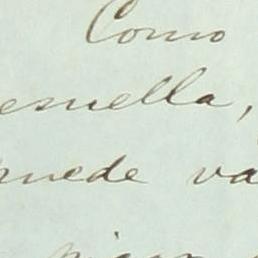 Como
esuella,
puede va